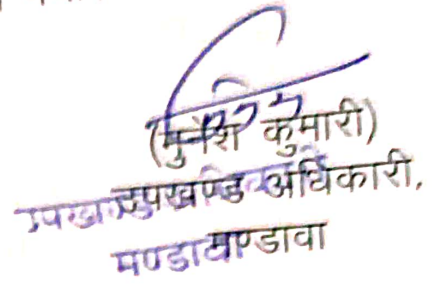 (मुनेश कुमारी)
उपखण्ड अधिकारी,
मण्डावा